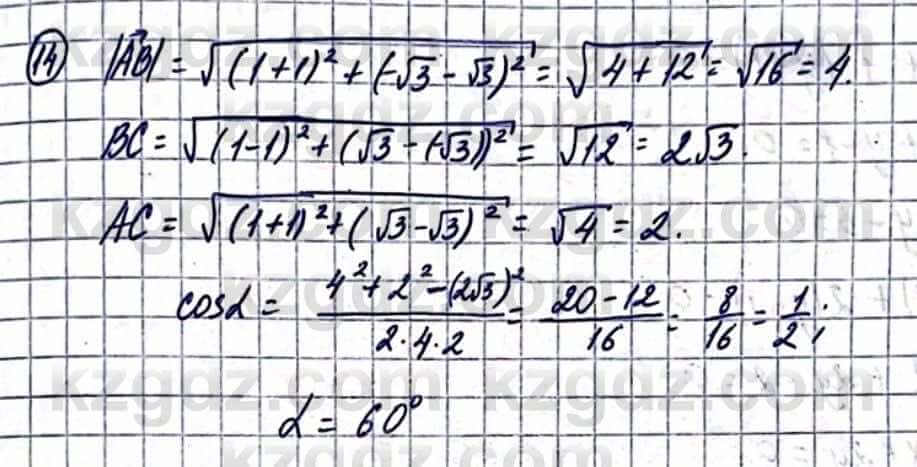 14 |AB| = √((1+1)² + (-√3 - √3)²) = √(4 + 12) = √16 = 4.
BC = √((1-1)² + (√3 - (-√3))²) = √12 = 2√3.
AC = √((1+1)² + (√3 - √3)²) = √4 = 2.
cosα = (4² + 2² - (2√3)²)/(2·4·2) = (20 - 12)/16 = 8/16 = 1/2;
α = 60°
kzgdz.com kzgdz.com
kzgdz.com kzgdz.com
kzgdz.com kzgdz.com